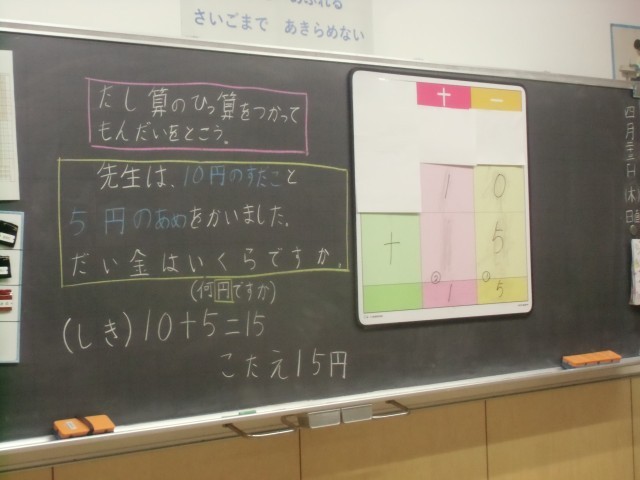 さいごまで あきらめない
たし算のひっ算をつかって
もんだいをとこう。
先生は、10円のすだこと
5円のあめをかいました。
だい金はいくらですか。
(何円ですか)
(しき)10+5=15
こたえ15円
十 一
1 0
+ 5
② ①
1 5